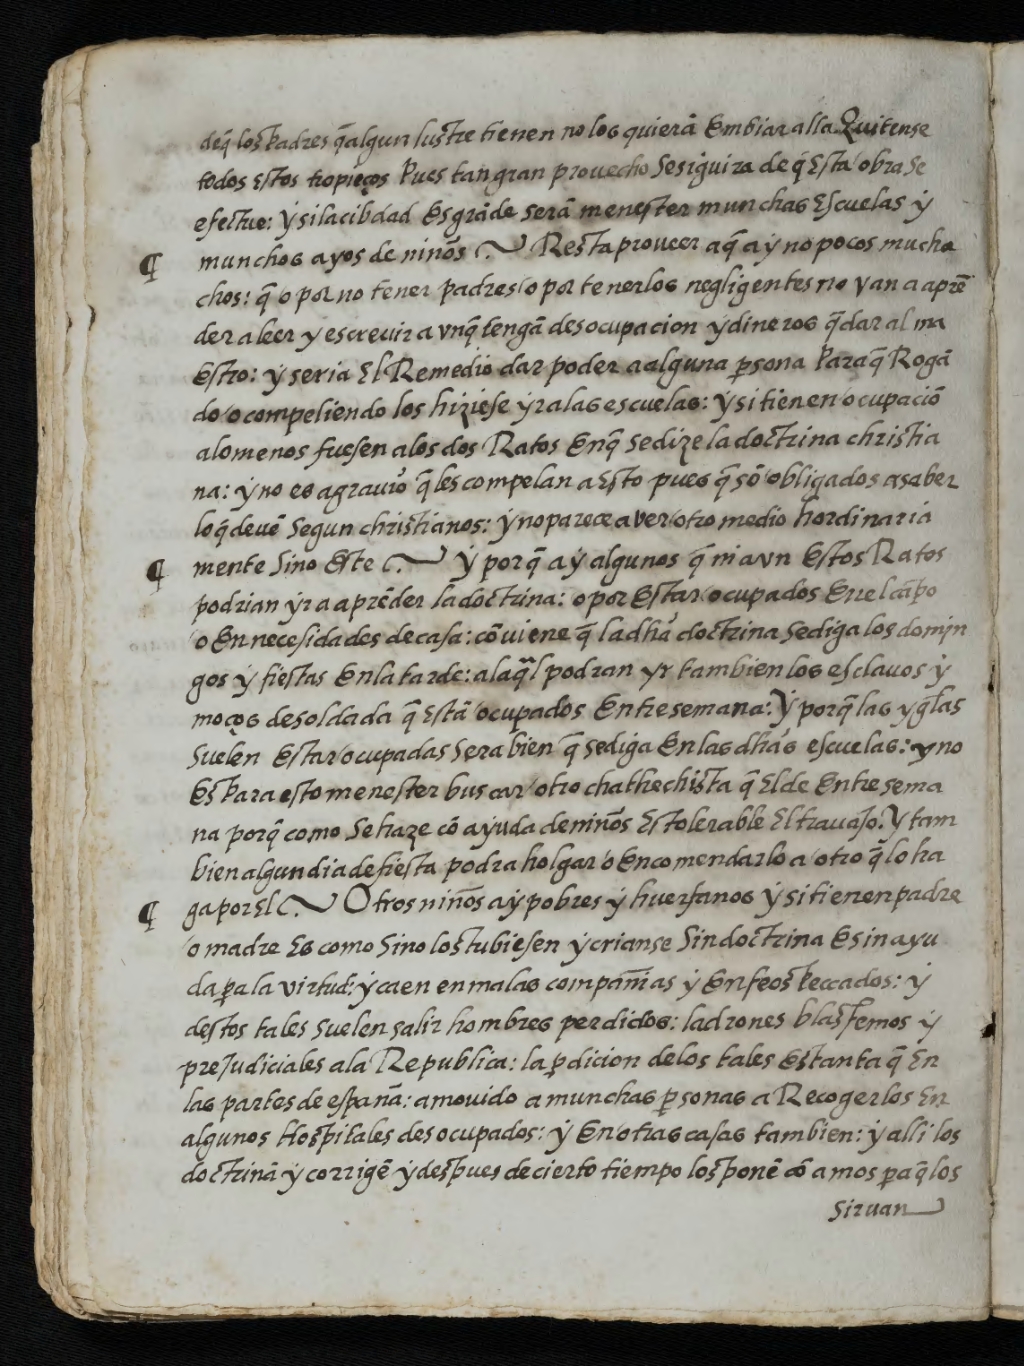 deq̃ los padres q̃ algun lustre tienen no los quierã Embiar alla Quitense
todos Estos tropieços Pues tan gran prouecho Se siguira de q̃ Esta obra Se
efectue: ý si la cibdad Es grãde será menester munchas Escuelas ý
¶ munchos ayos de niños Resta proueer a q̃ aý no pocos mucha
chos: q̃ o por no tener padres o por tenerlos negligentes no van a aprẽ
der a leer y escreuir avnq̃ tengã desocupacion ý dineros q̃ dar al ma
Estro: ý seria El Remedio dar poder a alguna psona Para q̃ Rogã
do o compeliendo los hiziese ýr a las escuelas: ý si tienen ocupaciõ
alomenos fuesen a los dos Ratos En q̃ se dize la doctrina christia
na: ý no es agrauio q̃ les compelan a Esto pues q̃ sõ obligados a saber
lo q̃ deuẽ Segun christianos: ý no parece aver otro medio hordinaria
¶ mente Sino Este ý porq̃ aý algunos q̃ ni avn Estos Ratos
podrian ýr a aprẽder la doctrina: o por Estar ocupados En el cãpo
o En necesidades de casa: cõuiene q̃ la dha doctrina Se diga los domin
gos ý fiestas En la tarde: a la q̃l podran yr tambien los esclauos ý
moços de soldada q̃ Estã ocupados Entre semana: Ý porq̃ las yg̃las
Suelen Estar ocupadas Sera bien q̃ se diga En las dhas escuelas: y no
Es Para esto menester buscar otro chathechista q̃ El de Entre sema
na porq̃ como Se haze cõ ayuda de niños Es tolerable El trauajo. Y tam
bien algun dia de fiesta podra holgar o Encomendarlo a otro q̃ lo ha
¶ ga por El Otros niños aý pobres ý huerfanos ý si tienen padre
o madre Es como Sino los tubiesen ý crianse Sin doctrina E sin ayu
da pa la virtud: ý caen en malas compañias ý En feos Peccados: ý
destos tales suelen salir hombres perdidos: ladrones blasfemos ý
prejudiciales a la Republica: la pdicion de los tales Es tanta q̃ En
las partes de españa: a mouido a munchas psonas a Recogerlos En
algunos Hospitales desocupados: ý En otras casas tambien: ý alli los
doctrinã ý corrigẽ ý despues de cierto tiempo los ponẽ cõ amos pa q̃ los
Siruan